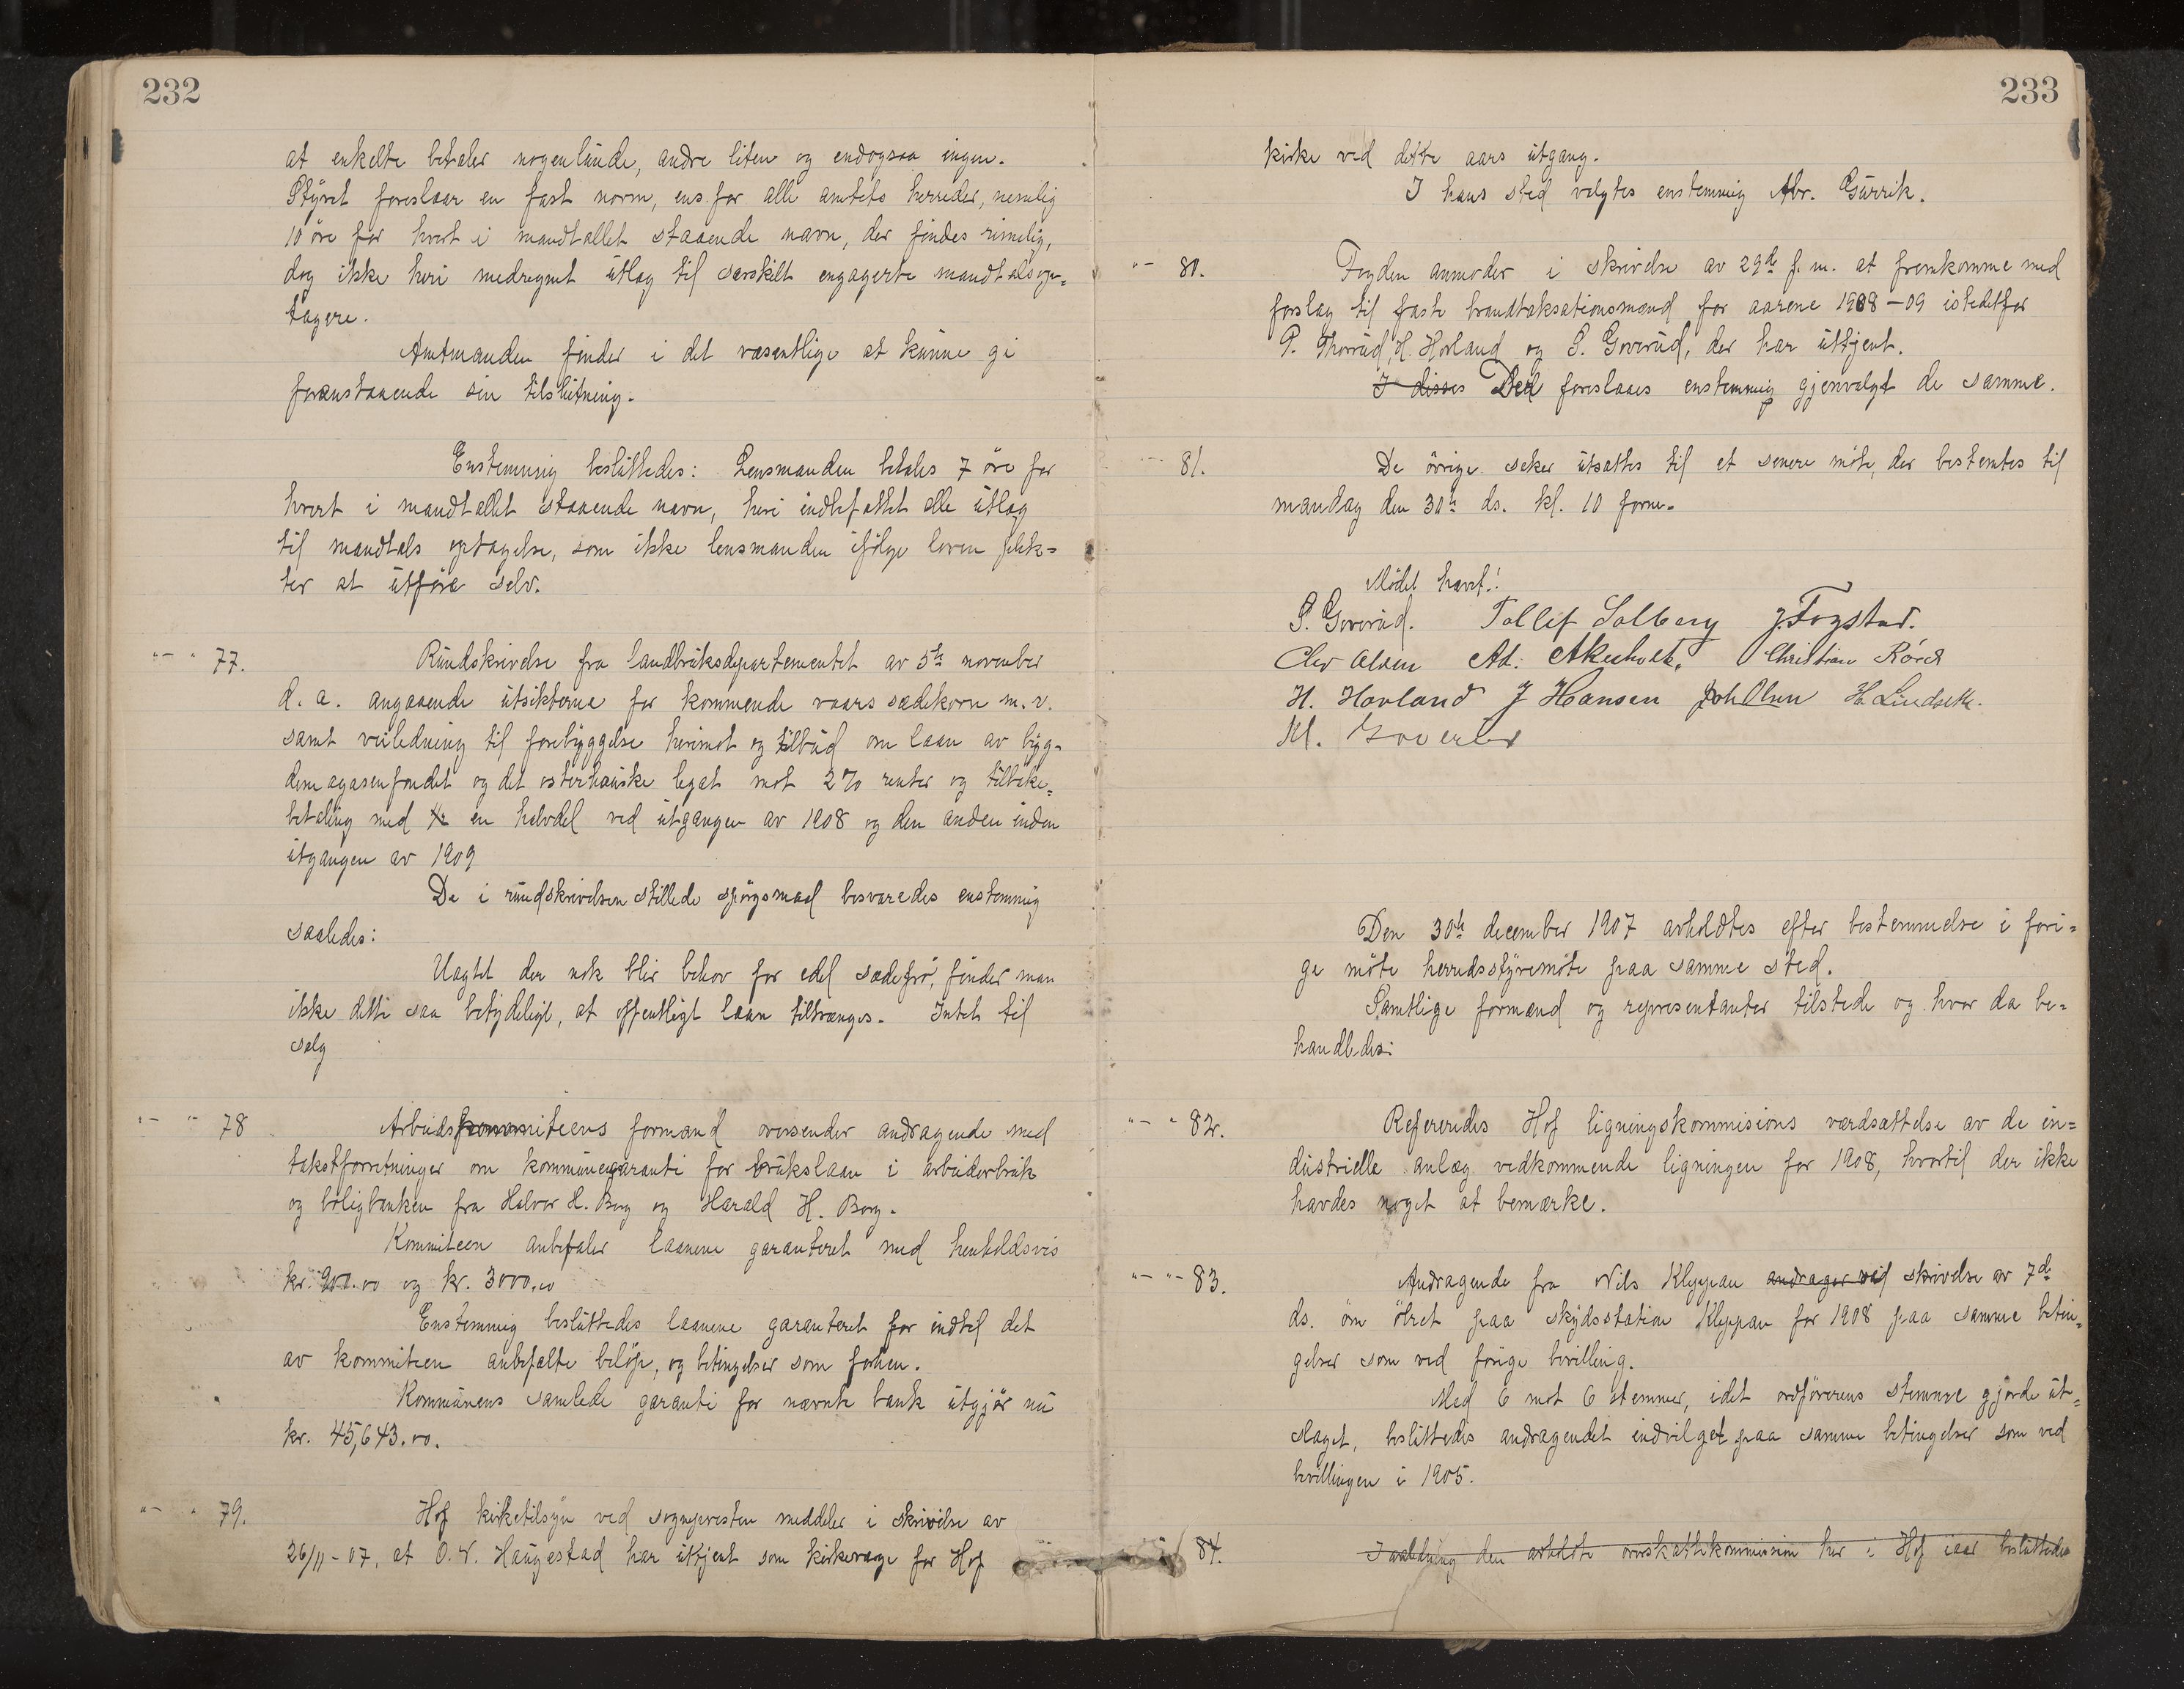 232
at enkelte betaler nogenlunde, andre liten og endogsaa ingen.
Styret foreslaar en fast norm, ens for alle amtets herreder, nemlig
10 öre for hvert i mandtallet staaende navn, der findes rimelig,
dog ikke heri medregnet utlæg til særskilt engagerte mandtalsop=
tagere.
Amtmanden finder i det væsentlige at kunne gi
foranstaaende sin tilslutning.
Enstemmig besluttedes: Lensmanden betales 7 öre for
hvert i mandtallet staaende navn, heri indbefattet alle utlæg
til mandtals optagelse, som ikke lensmanden ifölge loven plik=
ter at utföre selv.
" — " 77. Rundskrivelse fra landbruksdepartementet av 5te november
d. a. angaaende utsikterne for kommende vaars sædekorn m.v.
samt veiledning til forebyggelse herimot og tilbud om laan av byg=
demagasenfondet og det osterhauske legat mot 2% renter og tilbake=
betaling med en halvdel ved utgangen av 1908 og den anden inden
utgangen av 1909
De i rundskrivelsen stillede spörgsmaal besvaredes enstemmig
saaledes:
Uagtet der nok blir behov for edel sædefrö, finder man
ikke dette saa betydeligt, at offentligt laan tiltrænges. Intet til
salg
" — " 78 Arbeidskommiteens formand oversender andragende med
takstforretninger om kommunegaranti for brukslaan i arbeiderbruk
og boligbanken fra Halvor H. Berg og Harald H. Berg.
Kommiteen anbefaler laanene garanteret med henholdsvis
kr. 900.00 og kr. 3000.00
Enstemmig besluttedes laanene garanteret for indtil det
av kommiteen anbefalte belöp, og betingelser som forhen.
Kommunens samlede garanti for nævnte bank utgjör nu
kr. 45,643.00.
" — " 79. Hof kirketilsyn ved sognepresten meddeler i skrivelse av
26/11-07, at O. N. Haugestad har uttjent som kirkeværge for Hof
233
kirke ved dette aars utgang.
I hans sted valgtes enstemmig Abr. Gurrik.
" — 80. Fogden anmoder i skrivelse av 29de f. m. at fremkomme med
forslag til faste brandtaksationsmænd for aarene 1908-09 istedetfor
P. Thorrud, H. Hovland og S. Goverud, der har uttjent.
I disses Der foreslaaes enstemmig gjenvalgt de samme.
" — 81. De övrige saker utsattes til et senere möte, der bestemtes til
mandag den 30te ds. kl. 10 form.
Mödet hævet!
S. Goverud. Tollef Solberg J. Fogstad.
Olev Olsen Ad. Akerholt. Christian Röed
H. Hovland J Hansen Joh Olsen H. Lindseth.
Kl. Goverud
Den 30te december 1907 avholdtes efter bestemmelse i fori=
ge möte herredsstyremöte paa samme sted.
Samtlige formænd og representanter tilstede og hvor da be=
handledes:
" — " 82. Refereredes Hof ligningskommisions værdsættelse av de in=
dustrielle anlæg vedkommende ligningen for 1908, hvortil der ikke
havdes noget at bemærke.
" — " 83. Andragende fra Nils Kleppan andrager ved skrivelse av 7de
ds. om ölret paa skydsstation Kleppan for 1908 paa samme betin=
gelser som ved forige bevilling.
Med 6 mot 6 stemmer, idet ordförerens stemme gjorde ut=
slaget, besluttedes andragendet indvilget paa samme betingelser som ved
bevillingen i 1905.
84. I anledning den avholdte overskattekommission her i Hof iaar besluttedes